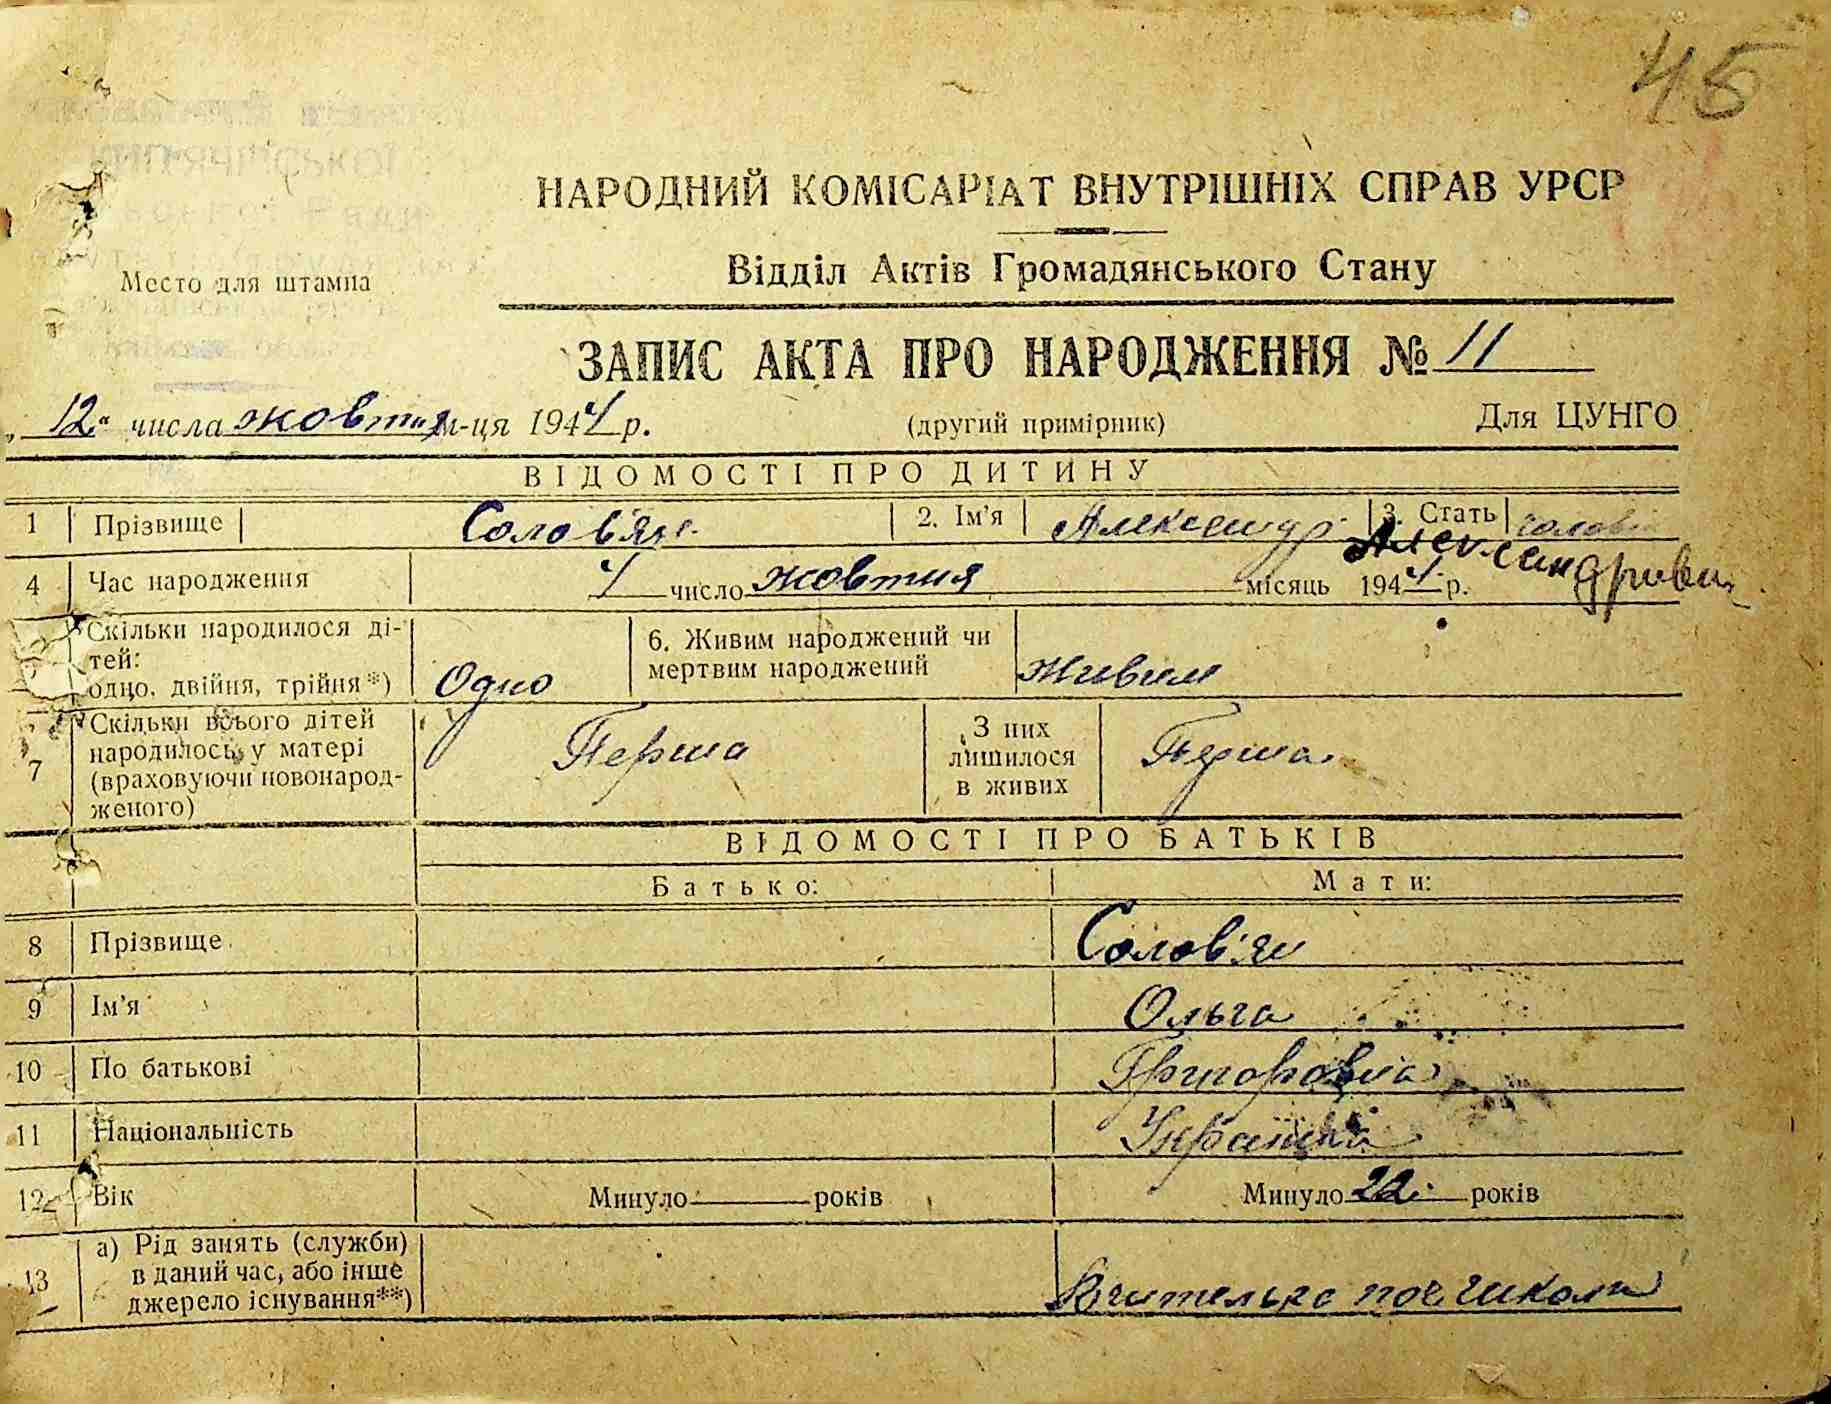 45
НАРОДНИЙ КОМІСАРІАТ ВНУТРІШНІХ СПРАВ УРСР
Відділ Актів Громадянського Стану
Место для штампа
ЗАПИС АКТА ПРО НАРОДЖЕННЯ № 11
„12" числа жовтня м-ця 1944 р. (другий примірник) Для ЦУНГО
ВІДОМОСТІ ПРО ДИТИНУ
1 Прізвище Солов'ян 2. Ім'я Александр 3. Стать чолові
Александрович
4 Час народження 4 число жовтня місяць 1944 р.
Скільки народилося дітей: одно, двійня, трійня*) Одно 6. Живим народжений чи мертвим народжений Живим
7 Скільки всього дітей народилось у матері (враховуючи новонародженого) Перша З них лишилося в живих Перша
ВІДОМОСТІ ПРО БАТЬКІВ
Батько: Мати:
8 Прізвище Солов'ян
9 Ім'я Ольга
10 По батькові Григоровна
11 Національність Українка
12 Вік Минуло років Минуло 22 років
13 а) Рід занять (служби) в даний час, або інше джерело існування**) Вчителька поч. школи